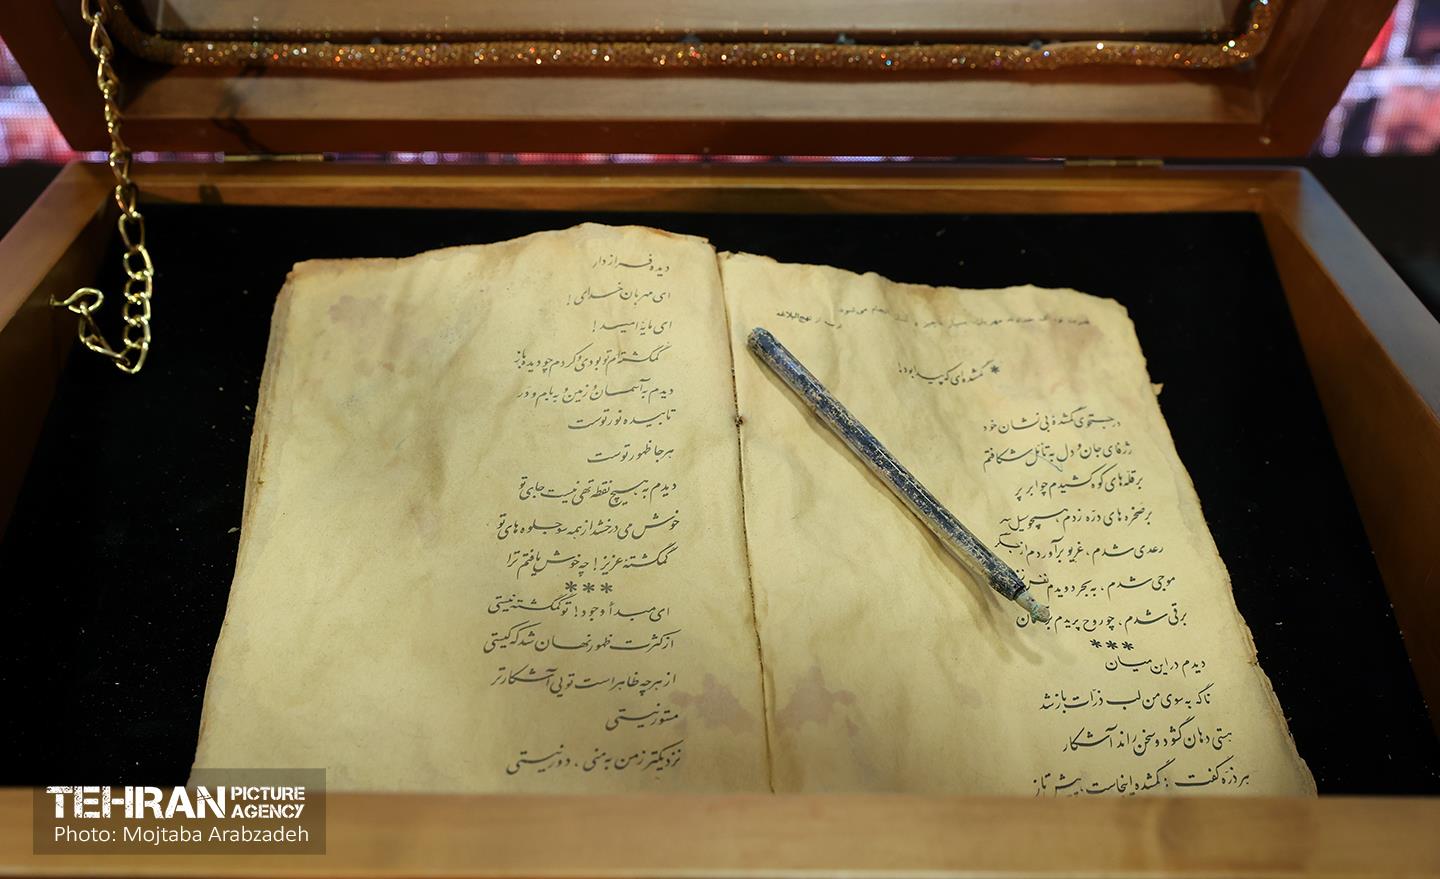 * گمشده‌ای که پیدا بود!
در جستجوی گمشدهٔ بی نشان خود
ژرفای جان و دل به تأمل شکافتم
بر قلّه‌های کوه کشیدم چو ابر پر
بر صخره های درّه زدم، همچو سیل
رعدی شدم، غریو برآوردم از جگر
موجی شدم، به بحر دویدم
برقی شدم، چو روح پریدم بر
***
دیدم در این میان
ناگه به سوی من لب ذرّات باز شد
هستی دهان گشود و سخن راند آشکار
هر ذرّه گفت: گمشده اینجاست، پیش تاز
دیده فراز دار
ای مهربان خدای!
ای مایهٔ امید!
گمگشته‌ام تو بودی و کردم چو دیده باز
دیدم به آسمان و زمین و به بام و در
تابیده نور توست
هر جا ظهور توست
دیدم به هیچ نقطه تهی نیست جای تو
خوش می درخشد از همه سو جلوه های تو
گمگشتهٔ عزیز! چه خوش یافتم ترا
***
ای مبدأ وجود! تو گمگشته نیستی
از کثرت ظهور نهان شد که کیستی
از هر چه ظاهر است تویی آشکارتر
مستور نیستی
نزدیکتر ز من به منی، دور نیستی
TEHRAN PICTURE AGENCY
Photo: Mojtaba Arabzadeh